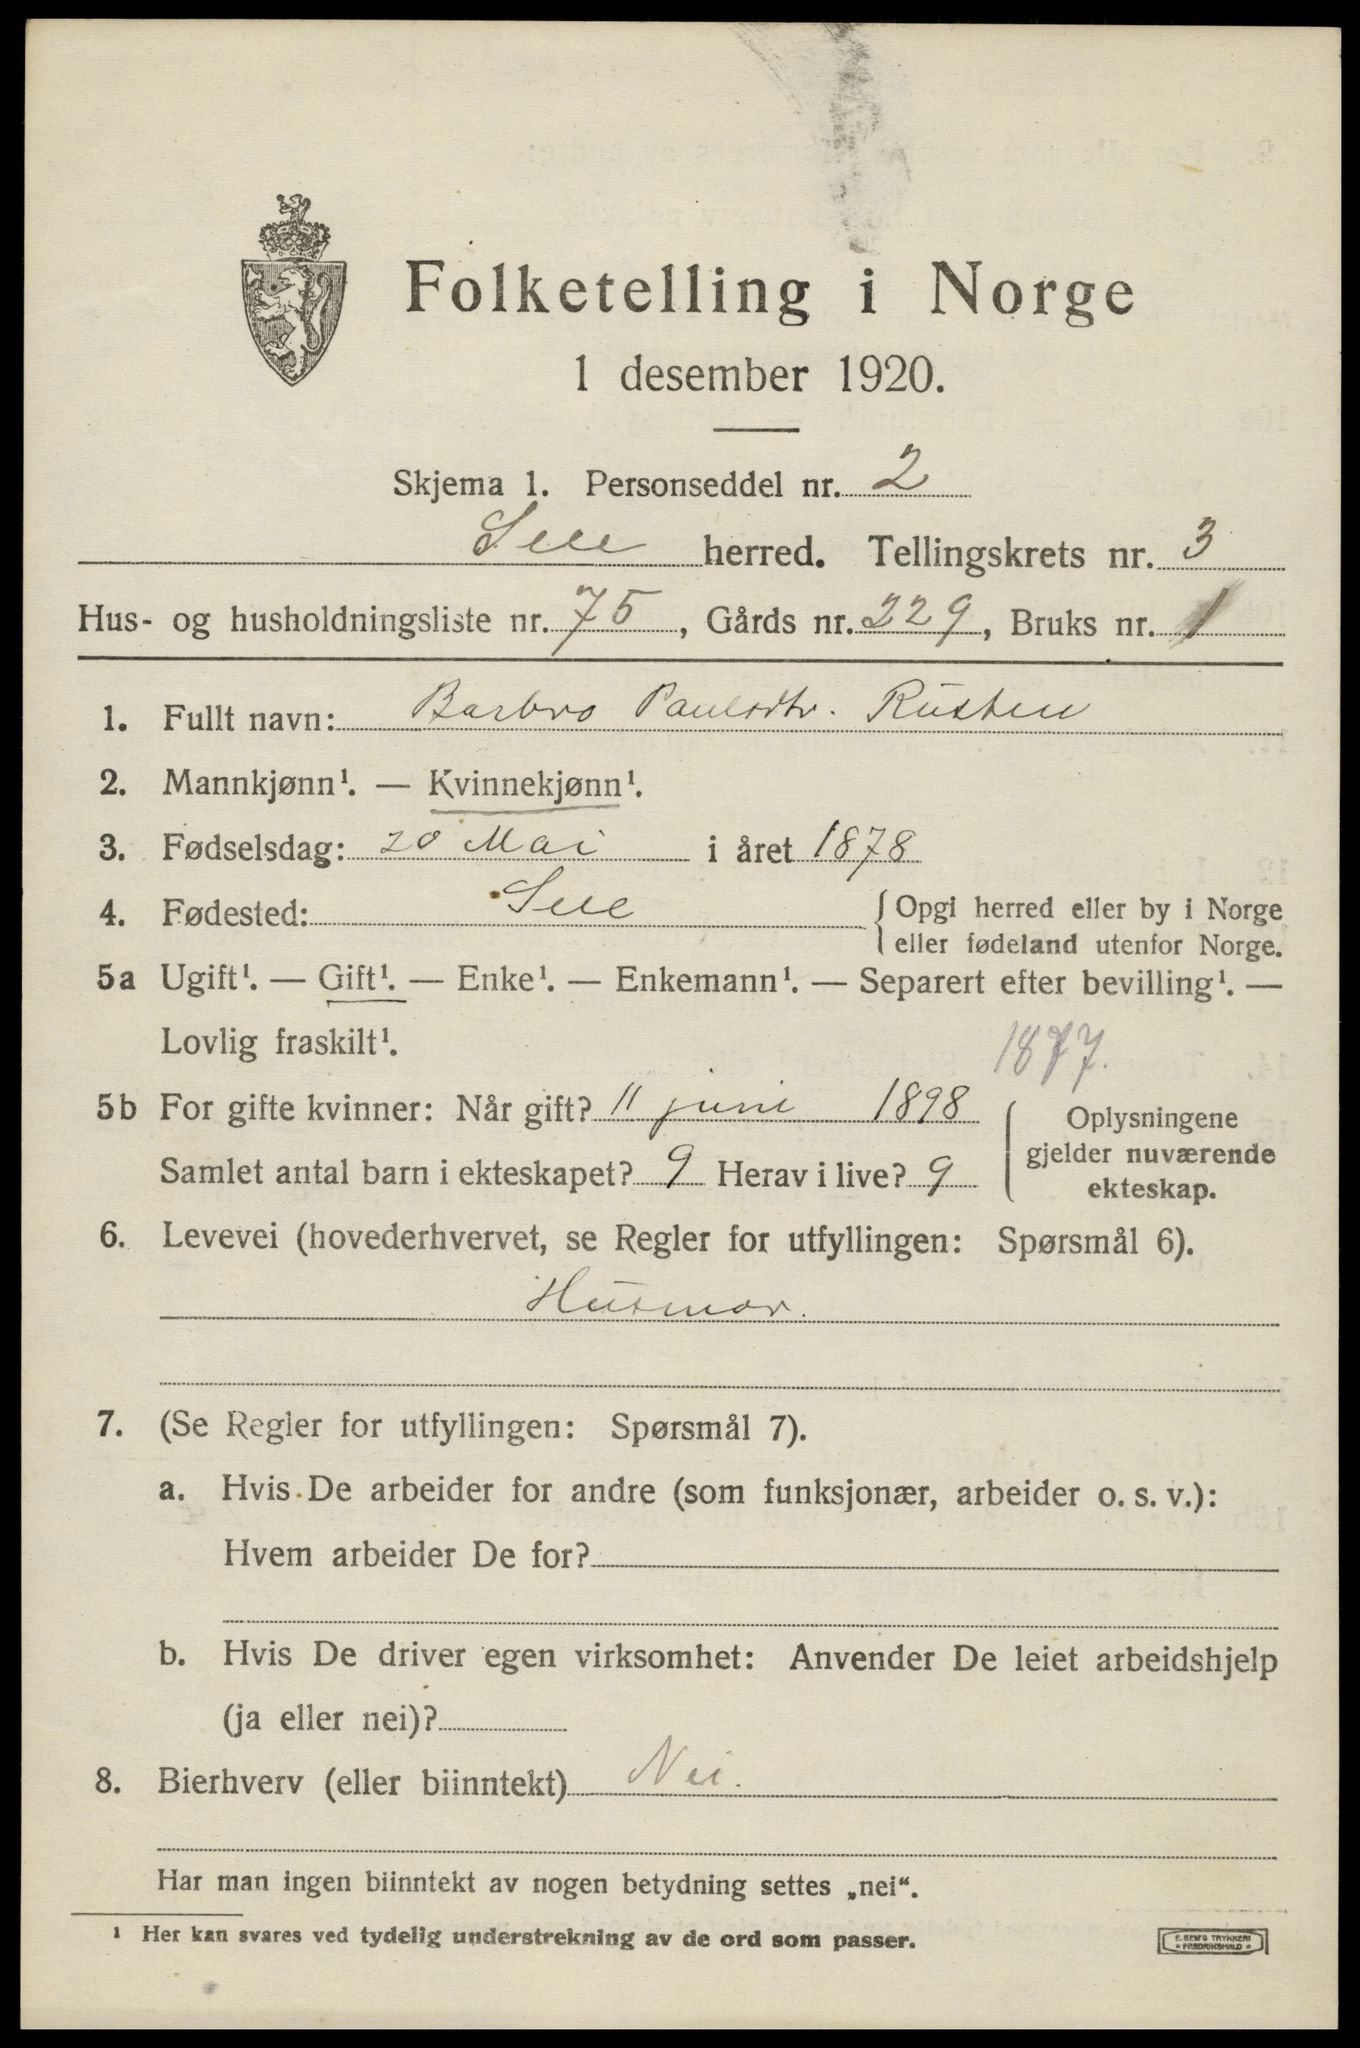 Folketelling i Norge
1 desember 1920.
Skjema 1. Personseddel nr. 2
Sell herred. Tellingskrets nr. 3
Hus- og husholdningsliste nr. 75, Gårds nr. 229, Bruks nr. 1
1. Fullt navn: Barbro Paulsdtr. Rusten
2. Mannkjønn¹. — Kvinnekjønn¹.
3. Fødselsdag: 20 Mai i året 1878
4. Fødested: Sell { Opgi herred eller by i Norge
eller fødeland utenfor Norge.
5a Ugift¹. — Gift¹. — Enke¹. — Enkemann¹. — Separert efter bevilling¹. —
Lovlig fraskilt¹.
1877.
5b For gifte kvinner: Når gift? 11 juni 1898
Samlet antal barn i ekteskapet? 9 Herav i live? 9
Oplysningene
gjelder nuværende
ekteskap.
6. Levevei (hovederhvervet, se Regler for utfyllingen: Spørsmål 6).
Husmor.
7. (Se Regler for utfyllingen: Spørsmål 7).
a. Hvis De arbeider for andre (som funksjonær, arbeider o. s. v.):
Hvem arbeider De for?
b. Hvis De driver egen virksomhet: Anvender De leiet arbeidshjelp
(ja eller nei)?
8. Bierhverv (eller biinntekt) Nei.
Har man ingen biinntekt av nogen betydning settes „nei“.
¹ Her kan svares ved tydelig understrekning av de ord som passer.
E. SEM'S TRYKKERI
* FREDRIKSHALD *